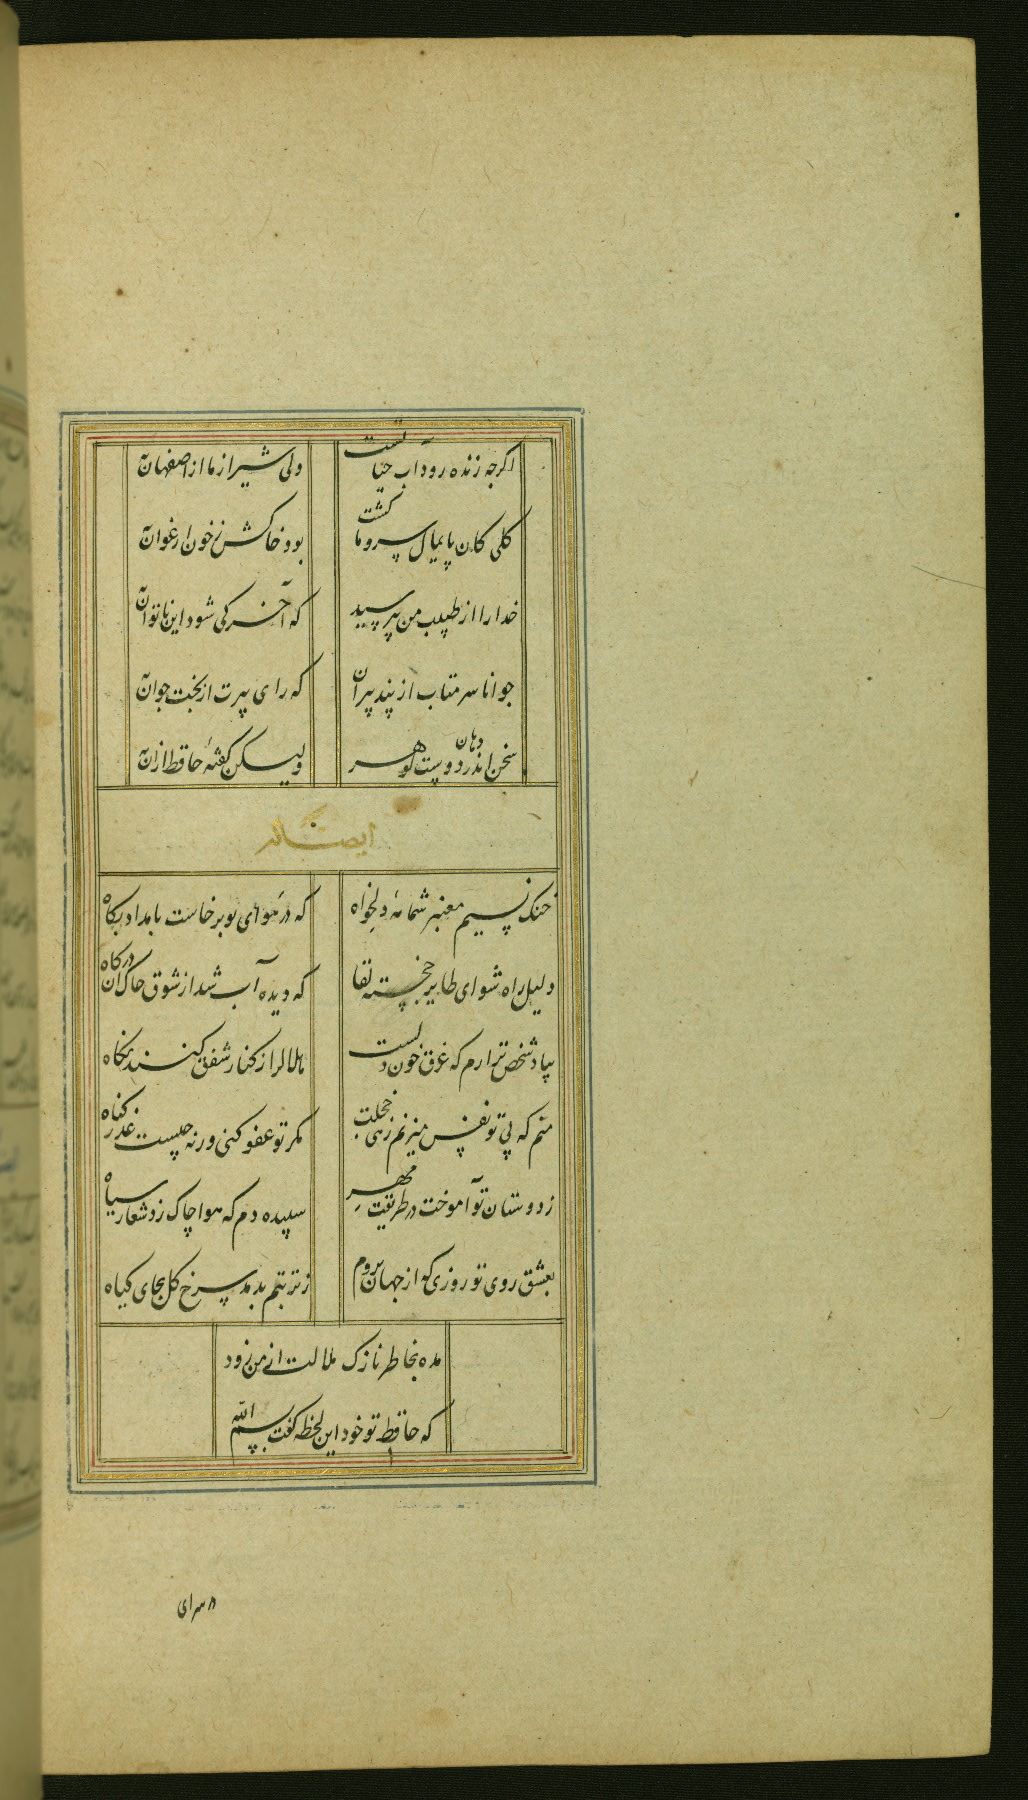 اکرچه زنده رود آب حیاتست
ولی شیراز ما از اصفهان به
کلی کان پایمال سرو ما کشت
بود خاکش ز خون ارغوان به
خدارا از طبیب من بپرسید
که آخر کی شود این ناتوان به
جوانا سر متاب از پند پیران
که رای پیرت از بخت جوان به
سخن اندر دهان دوست کوهر
ولیکن کفتهٔ حافظ از آن به
ایضا له
خنک نسیم معنبر شمامهٔ دلخواه
که در هوای تو برخاست بامداد بکاه
دلیل راه شو ای طایر خجسته لقا
که دیده آب شد از شوق خاک آن درکاه
بیاد شخص نزارم که غرق خون دلست
هلال را ز کنار شفق کنند نکاه
منم که بی تو نفس میزنم زهی خجلت
مکر تو عفو کنی ورنه چیست عذر کناه
ز دوستان تو آموخت در طریقت مهر
سپیده دم که هوا چاک زد شعار سیاه
بعشق روی تو روزی که از جهان بروم
ز تربتم بدمد سرخ کل بجای کیاه
مده بخاطر نازک ملالت از من زود
که حافظ تو خود این لحظه کفت بسم الله
در سرای